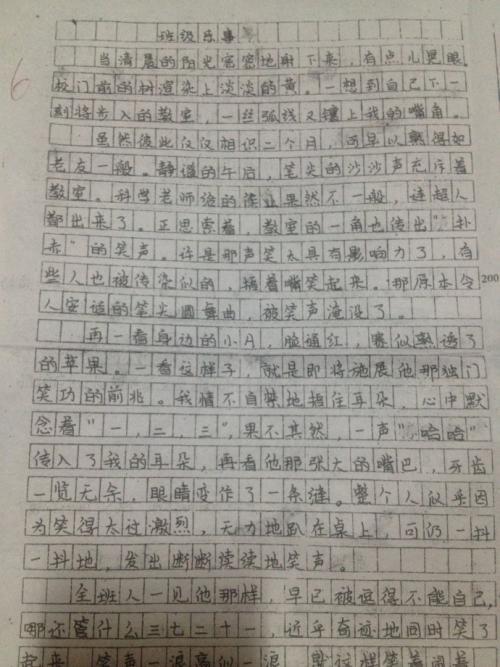 班级乐事
当清晨的阳光密密地射下来，有点儿晃眼。
校门前的树渲染上淡淡的黄。一想到自己下一
刻将步入的教室，一丝弧线又镶上我的嘴角。
虽然彼此仅仅相识二个月，可早以熟得如
老友一般。静谧的午后，笔尖的沙沙声充斥着
教室。科学老师给的作业果然不一般，连超人
都出来了。正思索着，教室的一角也传出"扑
赤"的笑声。许是那声笑太具有影响力了，有
些人也被传染似的，捂着嘴笑起来。那原本令
200
人安适的笔尖圆舞曲，被笑声淹没了。
再一看身边的小月，脸通红，赛似熟透了
的苹果。一看这样子，就是即将施展他那独门
笑功的前兆。我情不自禁地捂住耳朵，心中默
念着"一，二，三"，果不其然，一声"哈哈"
传入了我的耳朵，再看他那张大的嘴巴，牙齿
一览无余，眼睛变作了一条缝。整个人似乎因
为笑得太过激烈，无力地趴在桌上，可仍一抖
一抖地，发出断断读读地笑声。
全班人一见他那样，早已被逗得不能自己，
哪还管什么三七二十一，近乎奇迹地同时笑了
起来，笑声一浪高似一浪，就这样笑着闹着
6